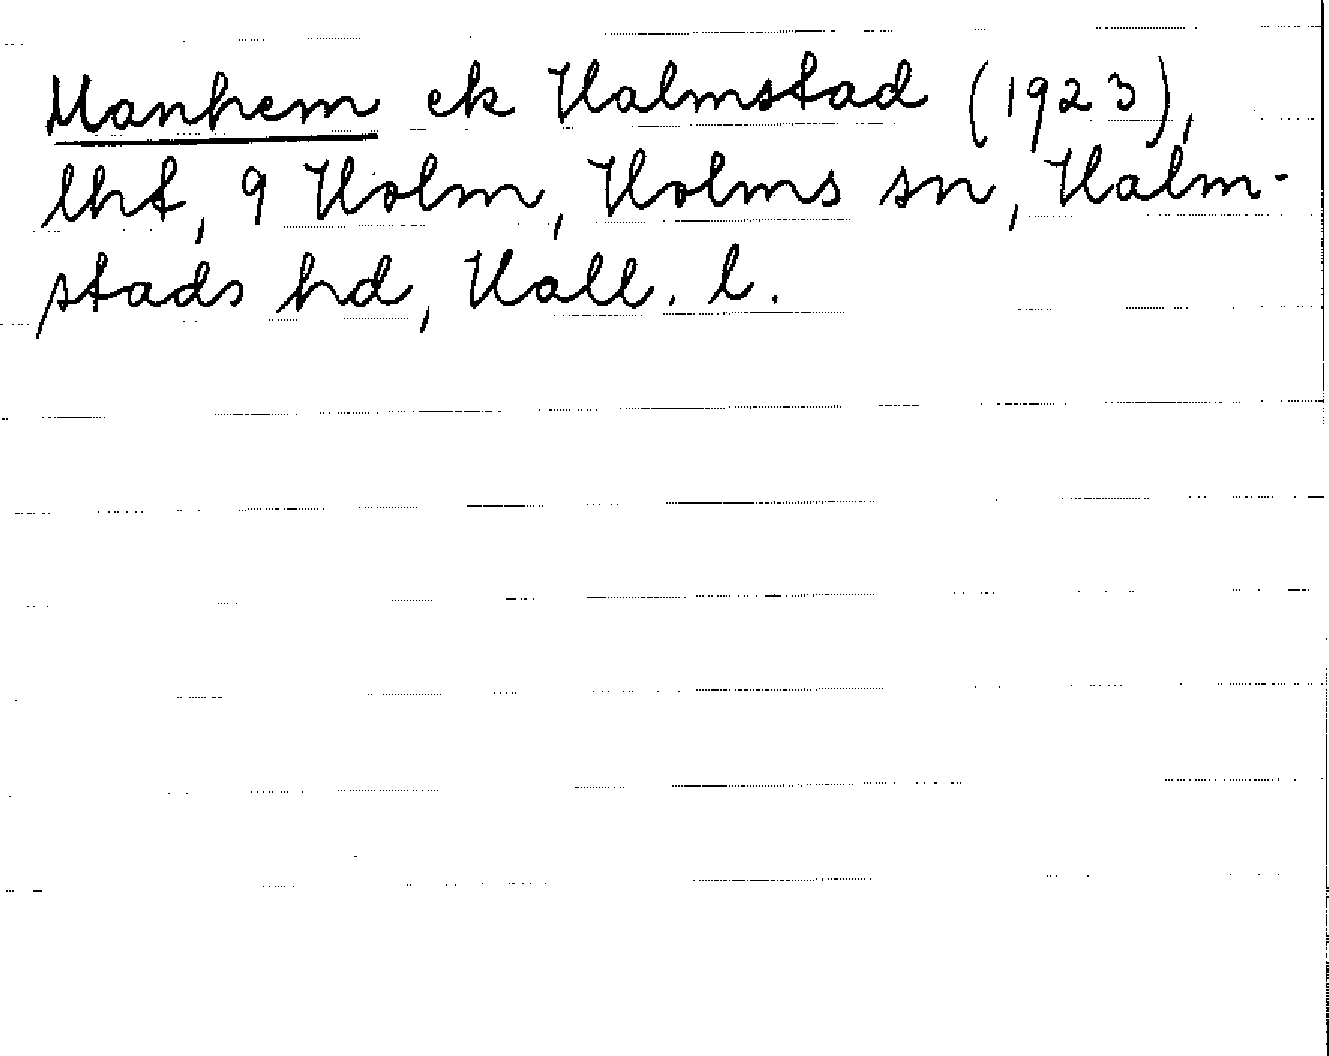 Manhem ek Halmstad (1923),
lht, 9 Holm, Holms sn, Halm-
stads hd, Hall. l.